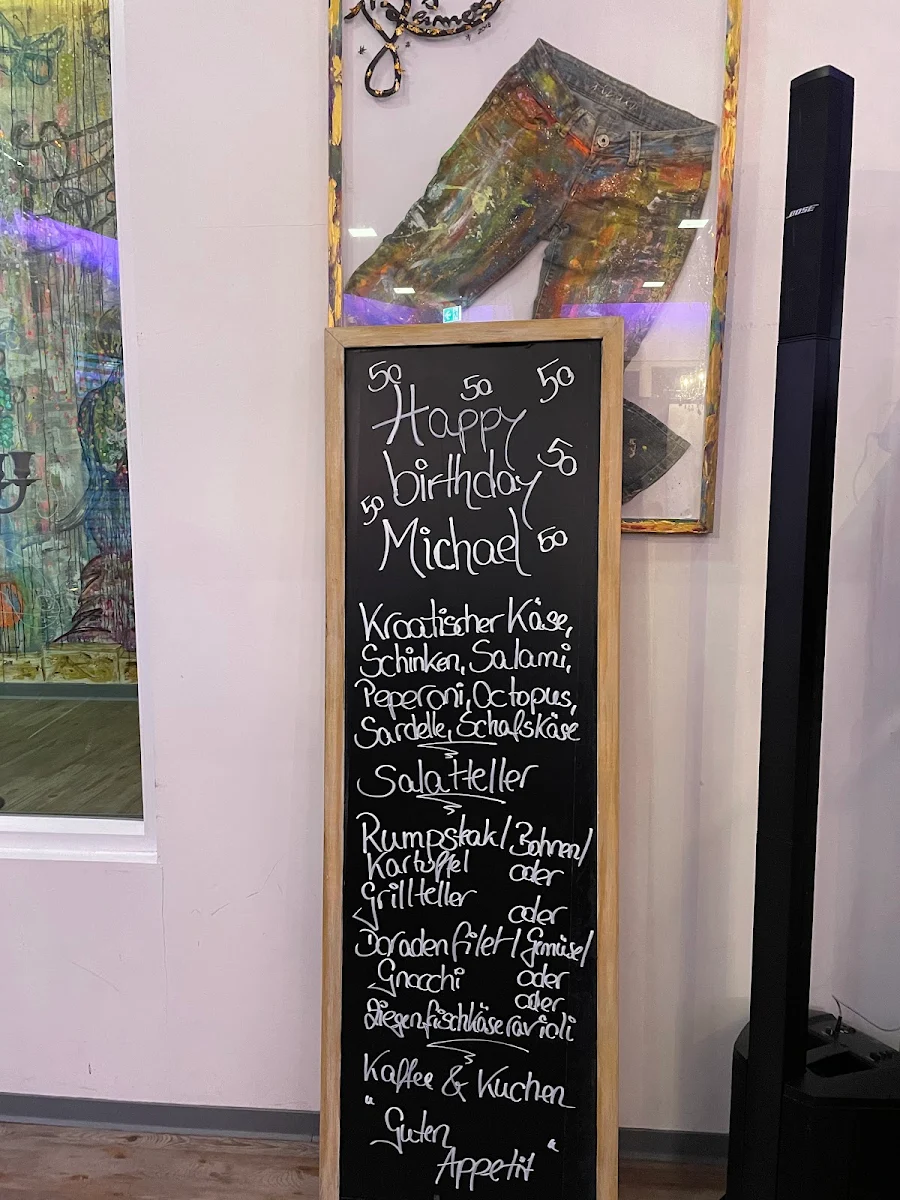 50 50 50
Happy
birthday 50
50
Michael 50
Kroatischer Käse,
Schinken, Salami,
Peperoni, Octopus,
Sardelle, Schafskäse
Salatteller
Rumpsteak / Bohnen /
Kartoffel oder
Grillteller
oder
Doradenfilet / Gemüse /
Gnocchi oder
oder
Ziegenfischkäseravioli
Kaffee & Kuchen
"Guten
Appetit"
BOSE